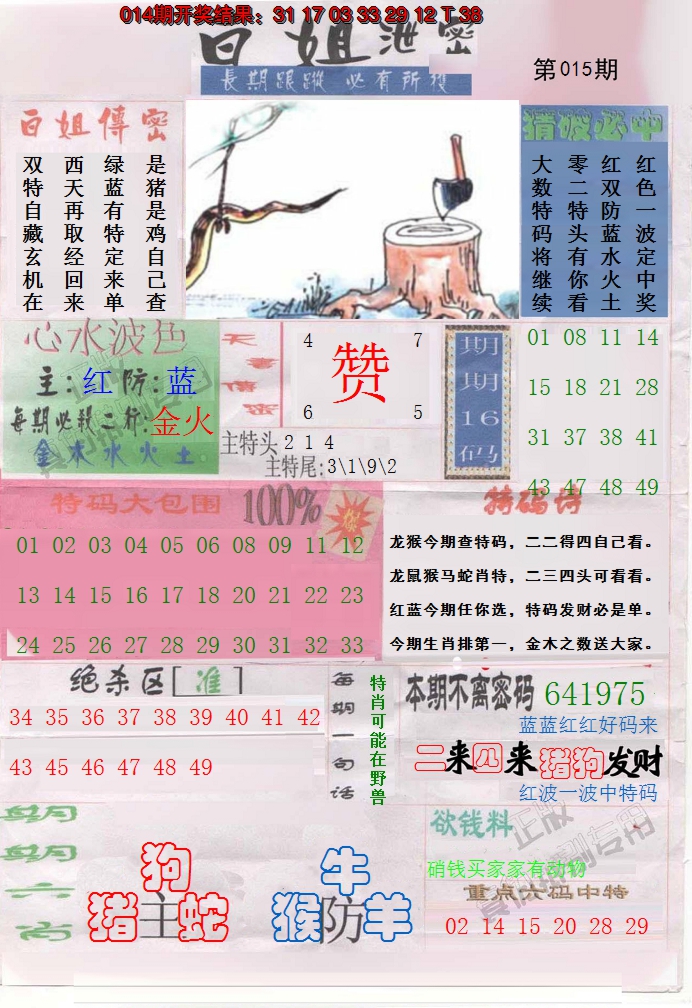 014期开奖结果：31 17 03 33 29 12 T 38
白姐泄密
第015期
長期跟蹤 必有所獲
白姐傳密
是猪是鸡自己查
绿蓝有特定来单
西天再取经回来
双特自藏玄机在
猜波必中
红色一波定中奖
红双防蓝水火土
零二特头有你看
大数特码将继续
心水波色
主:红 防:蓝
每期必殺二行:金火
金木水火土
天書信密
4 7
赞
6 5
主特头 2 1 4
主特尾:3\1\9\2
期期16码
01 08 11 14
15 18 21 28
31 37 38 41
43 47 48 49
特码大包围 100%
01 02 03 04 05 06 08 09 11 12
13 14 15 16 17 18 20 21 22 23
24 25 26 27 28 29 30 31 32 33
特码诗
龙猴今期查特码，二二得四自己看。
龙鼠猴马蛇肖特，二三四头可看看。
红蓝今期任你选，特码发财必是单。
今期生肖排第一，金木之数送大家。
绝杀区[准]
34 35 36 37 38 39 40 41 42
43 45 46 47 48 49
每期一句话
特肖可能在野兽
本期不离密码 641975
蓝蓝红红好码来
二来四来猪狗发财
红波一波中特码
每期六肖
狗
猪主蛇
牛
猴防羊
欲钱料
正版
硝钱买家家有动物
重点六码中特
02 14 15 20 28 29